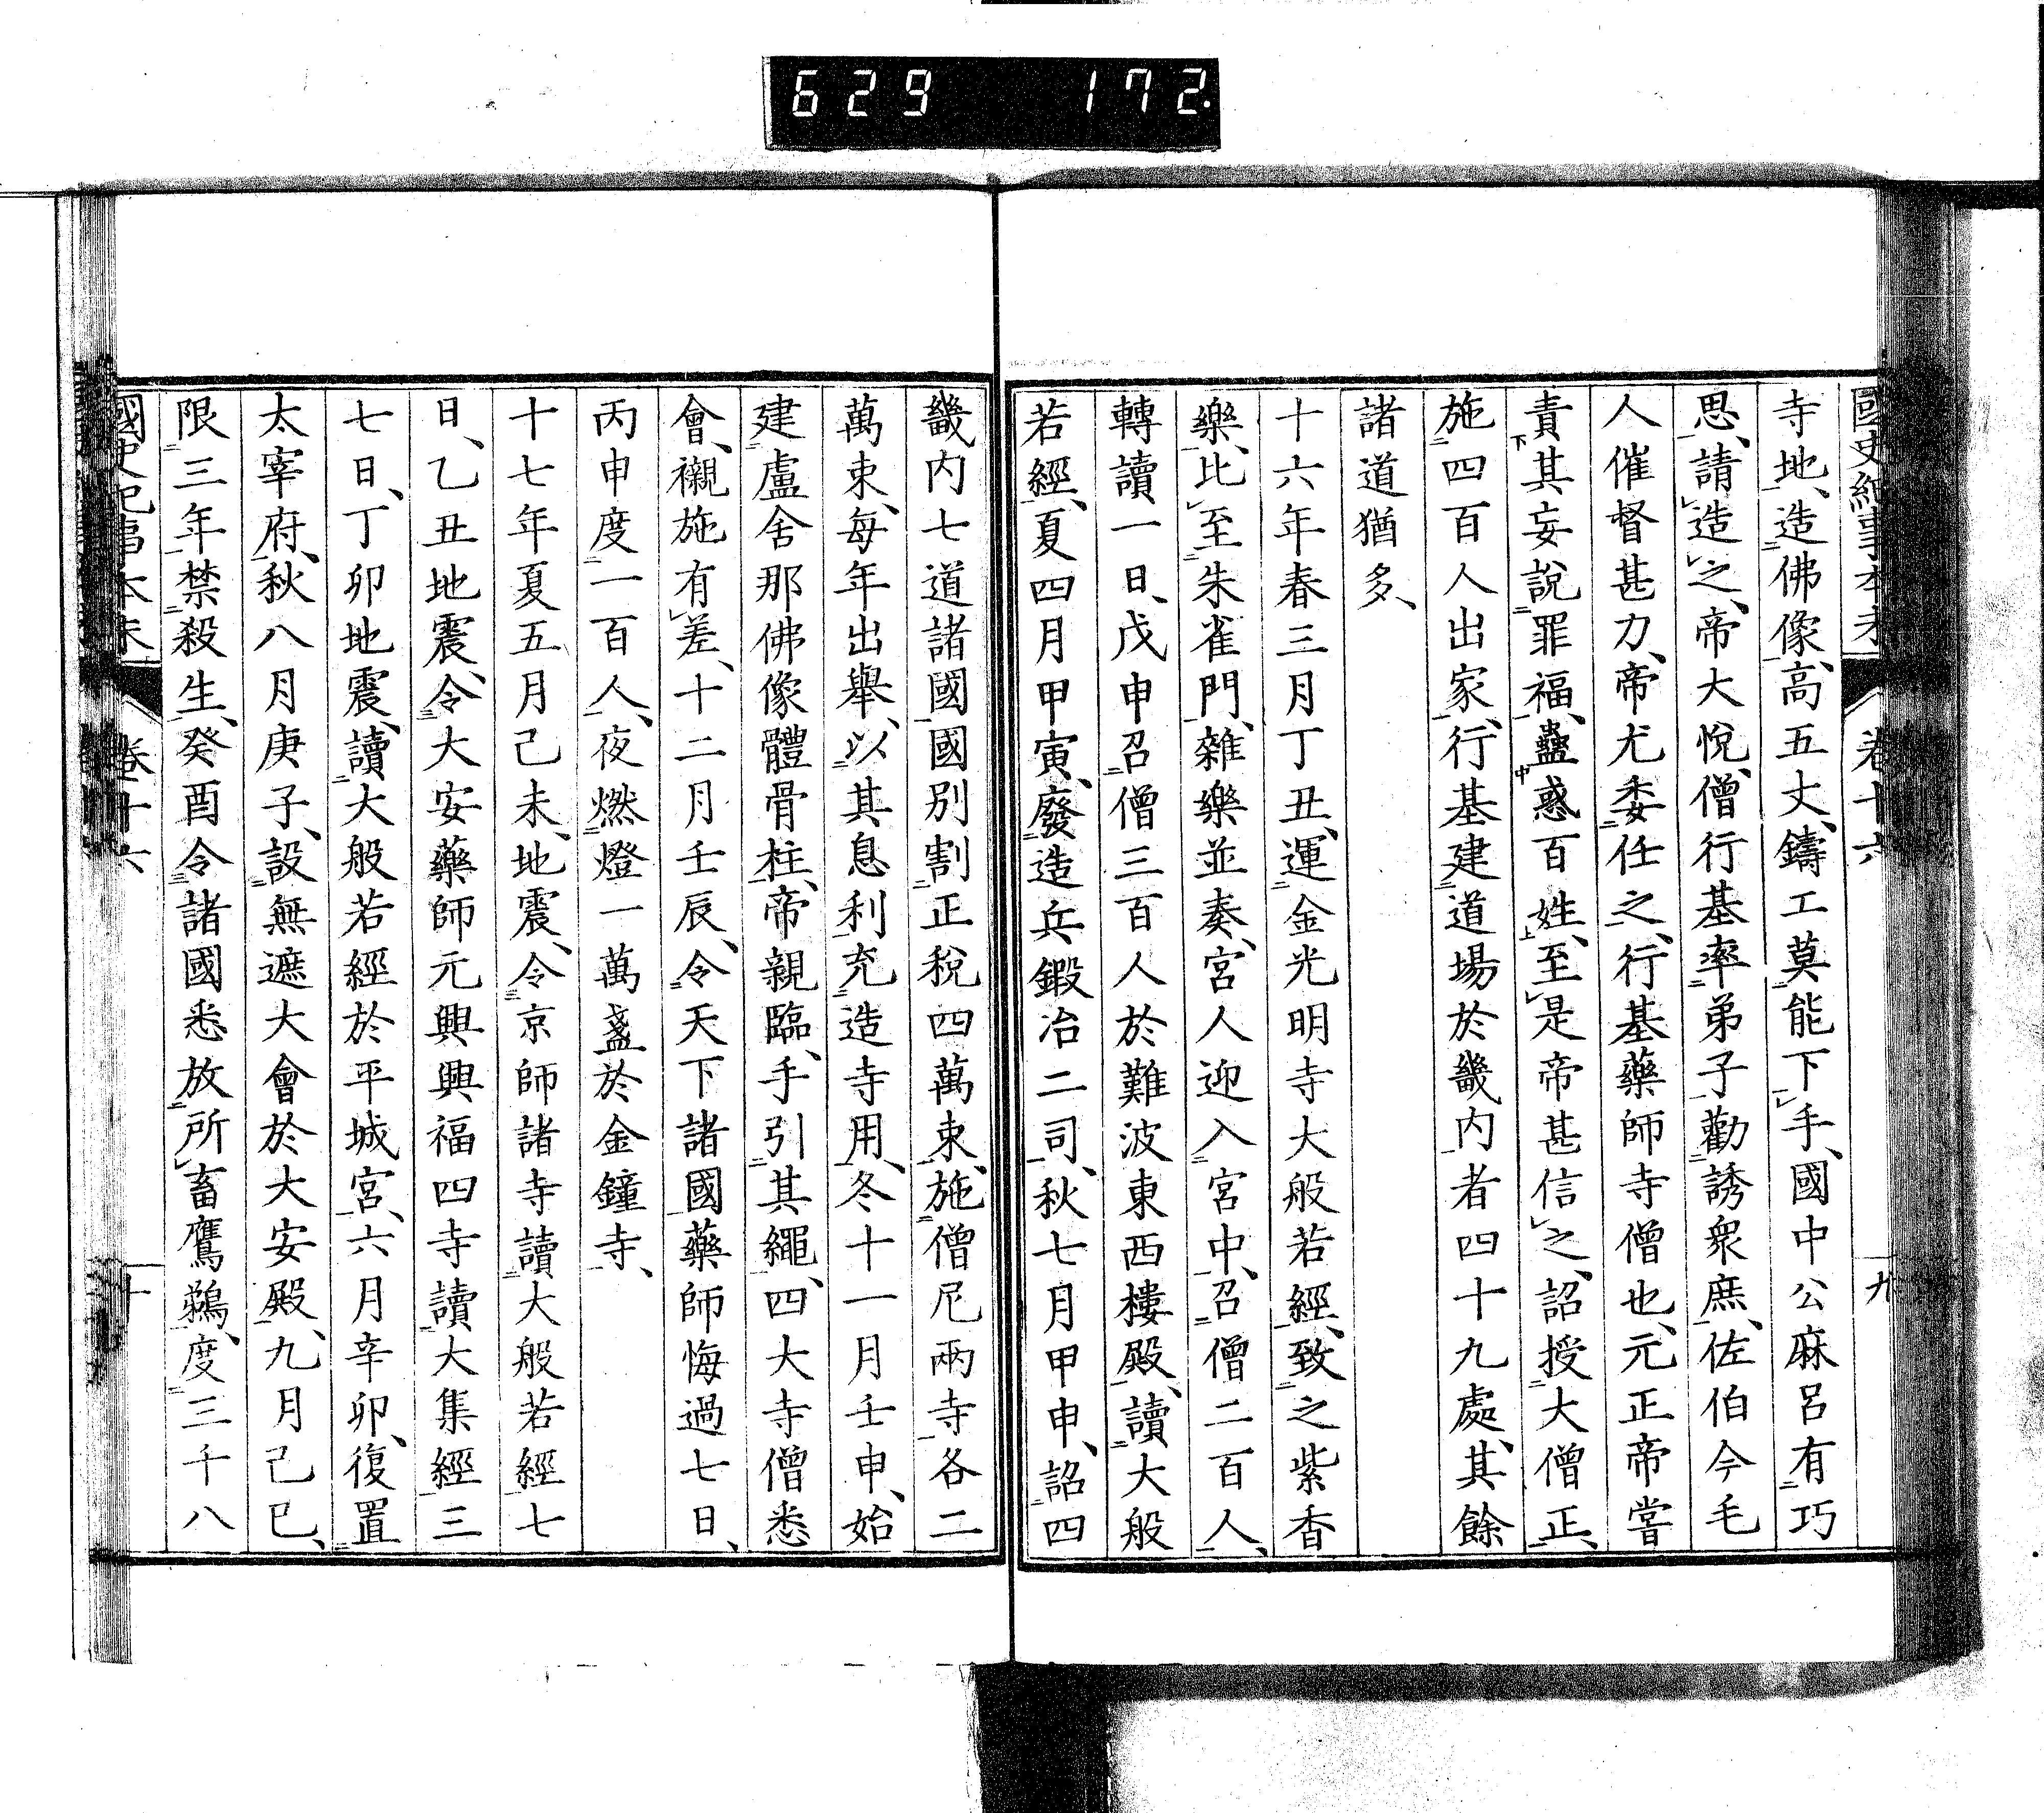 629 172
國史紀事本末 卷十六 九
寺地、造佛像、高五丈、鑄工莫能下手、國中公麻呂有巧
思、請造之、帝大悅、僧行基率弟子勸誘衆庶、佐伯今毛
人催督甚力、帝尤委任之、行基藥師寺僧也、元正帝嘗
責其妄說罪福、蠱惑百姓、至是帝甚信之、詔授大僧正、
施四百人出家、行基建道場於畿内者四十九處、其餘
諸道猶多、
十六年春三月丁丑、運金光明寺大般若經、致之紫香
樂、比至朱雀門、雜樂並奏、宮人迎入宮中、召僧二百人、
轉讀一日、戊申召僧三百人於難波東西樓殿、讀大般
若經、夏四月甲寅、廢造兵鍛冶二司、秋七月甲申、詔四
畿内七道諸國國別割正稅四萬束、施僧尼兩寺各二
萬束、每年出舉、以其息利充造寺用、冬十一月壬申、始
建盧舍那佛像體骨柱、帝親臨、手引其繩、四大寺僧悉
會、襯施有差、十二月壬辰、令天下諸國藥師悔過七日、
丙申度一百人、夜燃燈一萬盞於金鐘寺、
十七年夏五月己未、地震、令京師諸寺讀大般若經七
日、乙丑地震、令大安藥師元興興福四寺讀大集經三
七日、丁卯地震、讀大般若經於平城宮、六月辛卯、復置
太宰府、秋八月庚子、設無遮大會於大安殿、九月己巳、
限三年禁殺生、癸酉令諸國悉放所畜鷹鵜、度三千八
國史紀事本末 卷十六 十